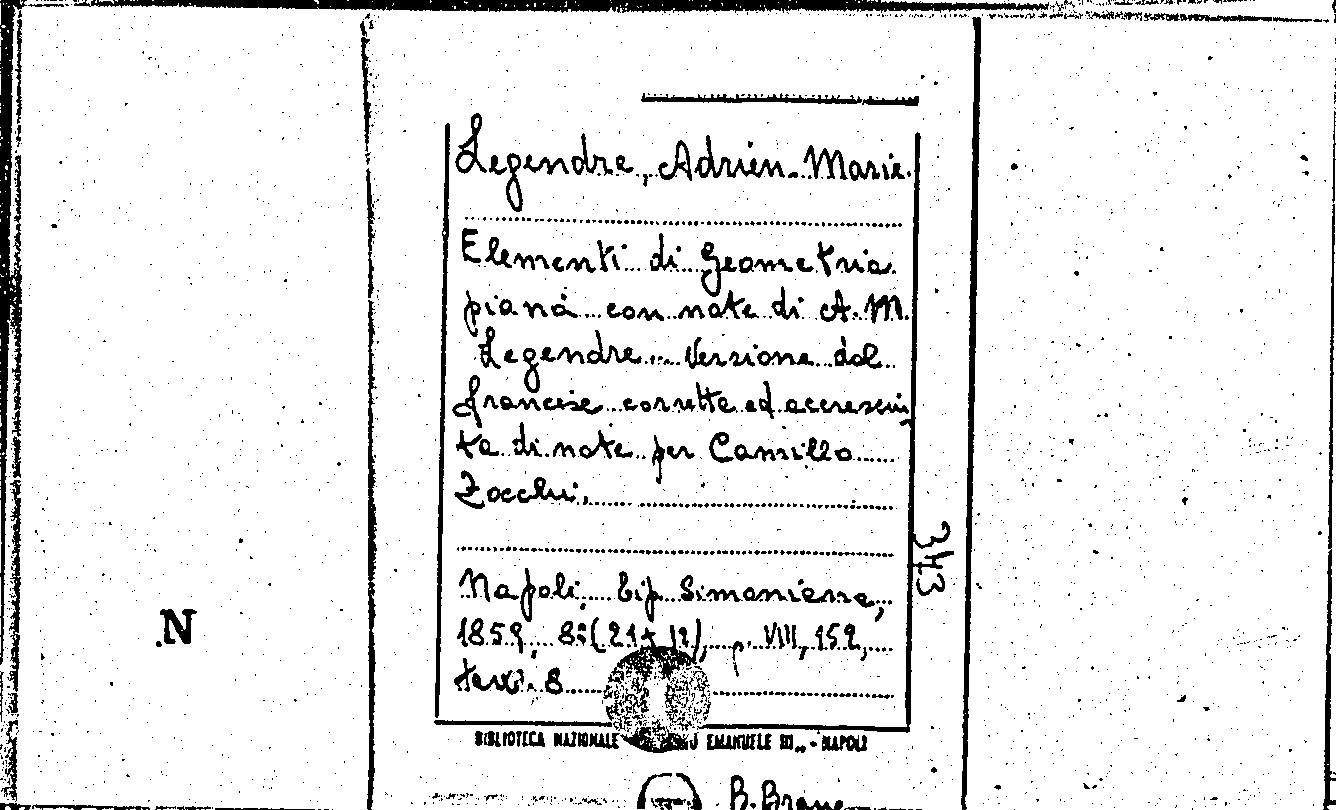 Legendre, Adrien-Marie.
Elementi di Geometria
piana con note di A. M.
Legendre... Versione dal
francese corretta ed accresciu
ta di note per Camillo
Zocchi.
343
Napoli, Tip. Simoniana,
1859, 8° (21x12), p. VIII, 152,
tavv. 8
N
BIBLIOTECA NAZIONALE EMANUELE III„ - NAPOLI
B. Branc